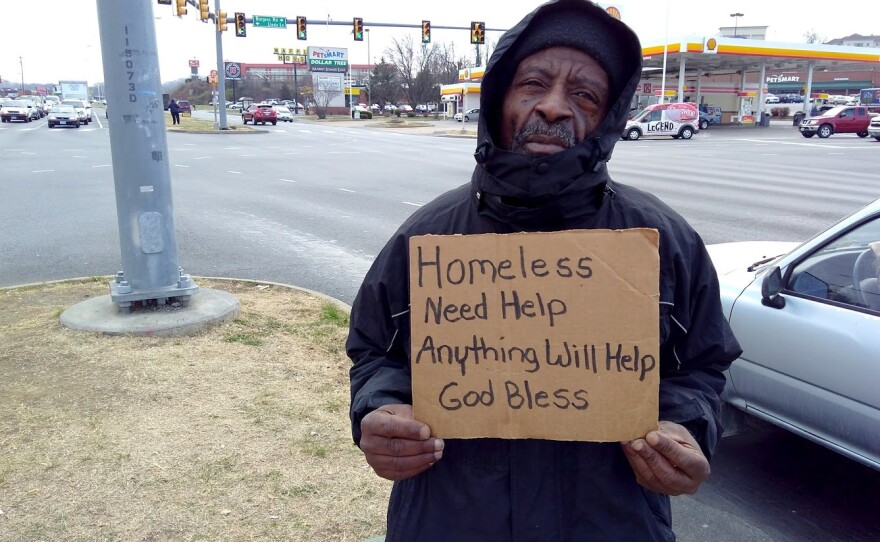 115073D
Burgess Rd
PETSMART
DOLLAR TREE
PETSMART
LEGEND
Homeless
Need Help
Anything Will Help
God Bless